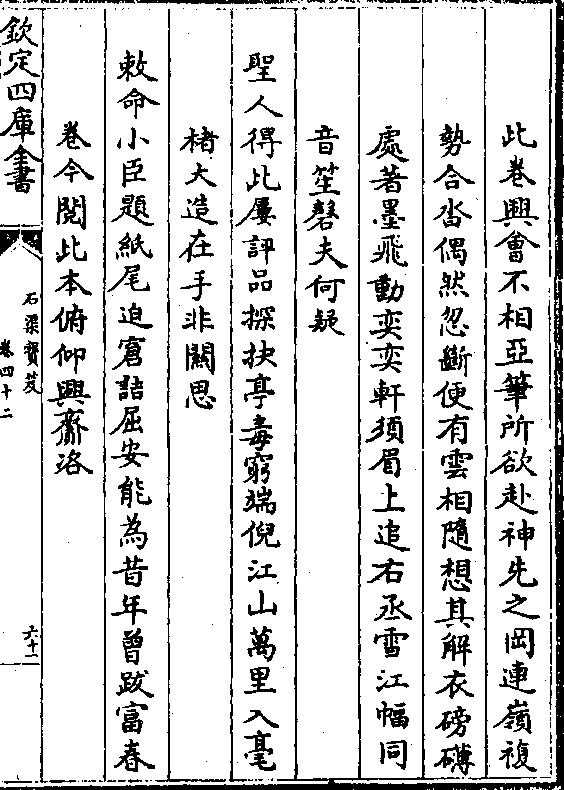 此卷興會不相亞筆所欲赴神先之岡連嶺複
勢合沓偶然忽斷便有雲相隨想其解衣磅礴
處著墨飛動奕奕軒須眉上追右丞雪江幅同
音笙磬夫何疑
聖人得此屢評品探抉亭毒窮端倪江山萬里入毫
楮大造在手非關思
敕命小臣題紙尾迫窘詰屈安能為昔年曾跋富春
卷今閲此本俯仰興齎洛
欽定四庫全書
石渠寳笈
卷四十二
六十一